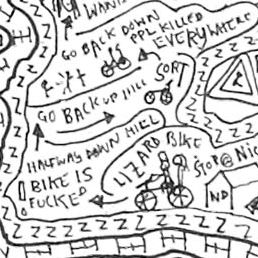 WAN
GO BACK DOWN
PPL KILLED
EVERYWHERE
SORT
GO BACK UP HILL
HALFWAY DOWN HILL
BIKE IS
FUCKED
LIZARD BIKE
STOP @ Nic
ND